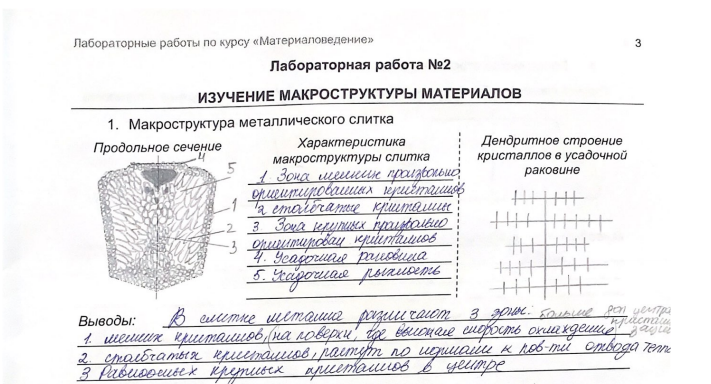 Лабораторные работы по курсу «Материаловедение»
3
Лабораторная работа №2
ИЗУЧЕНИЕ МАКРОСТРУКТУРЫ МАТЕРИАЛОВ
1. Макроструктура металлического слитка
Продольное сечение
4
5
1
2
3
Характеристика
макроструктуры слитка
1. Зона мелких произвольно
ориентированных кристаллов
2 столбчатые кристаллы
3. Зона крупных произвольно
ориентирован кристаллов
4. Усадочная раковина
5. Усадочная рыхлость
Дендритное строение
кристаллов в усадочной
раковине
Выводы: В слитке металла различают 3 зоны: больше центра
1. мелких кристаллов, (на поверхн, где высокая скорость охлаждения
2. столбчатых кристаллов, растут по нормали к пов-ти отвода тепла
3 Равноосных крупных кристаллов в центре